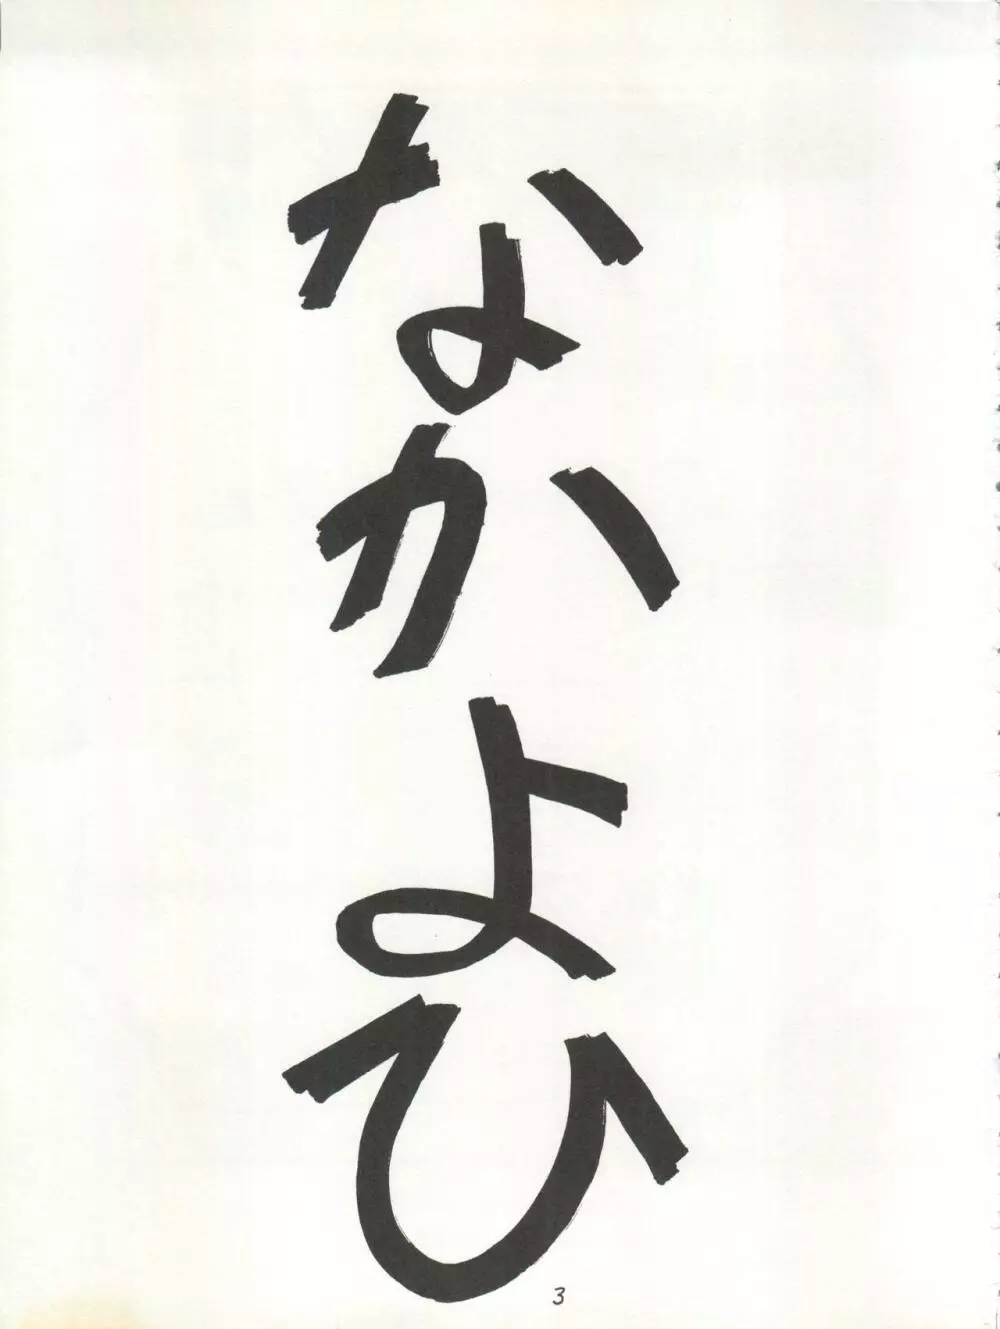 なかよひ
3